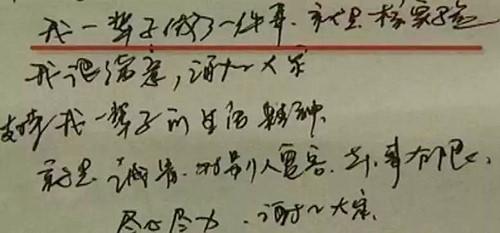 我一辈子做了一件事，就是核实验
我很满意，谢谢大家
支持我一辈子的生活精神，
就是诚实，对别人宽容，对事有恒心，
尽心尽力，谢谢大家，